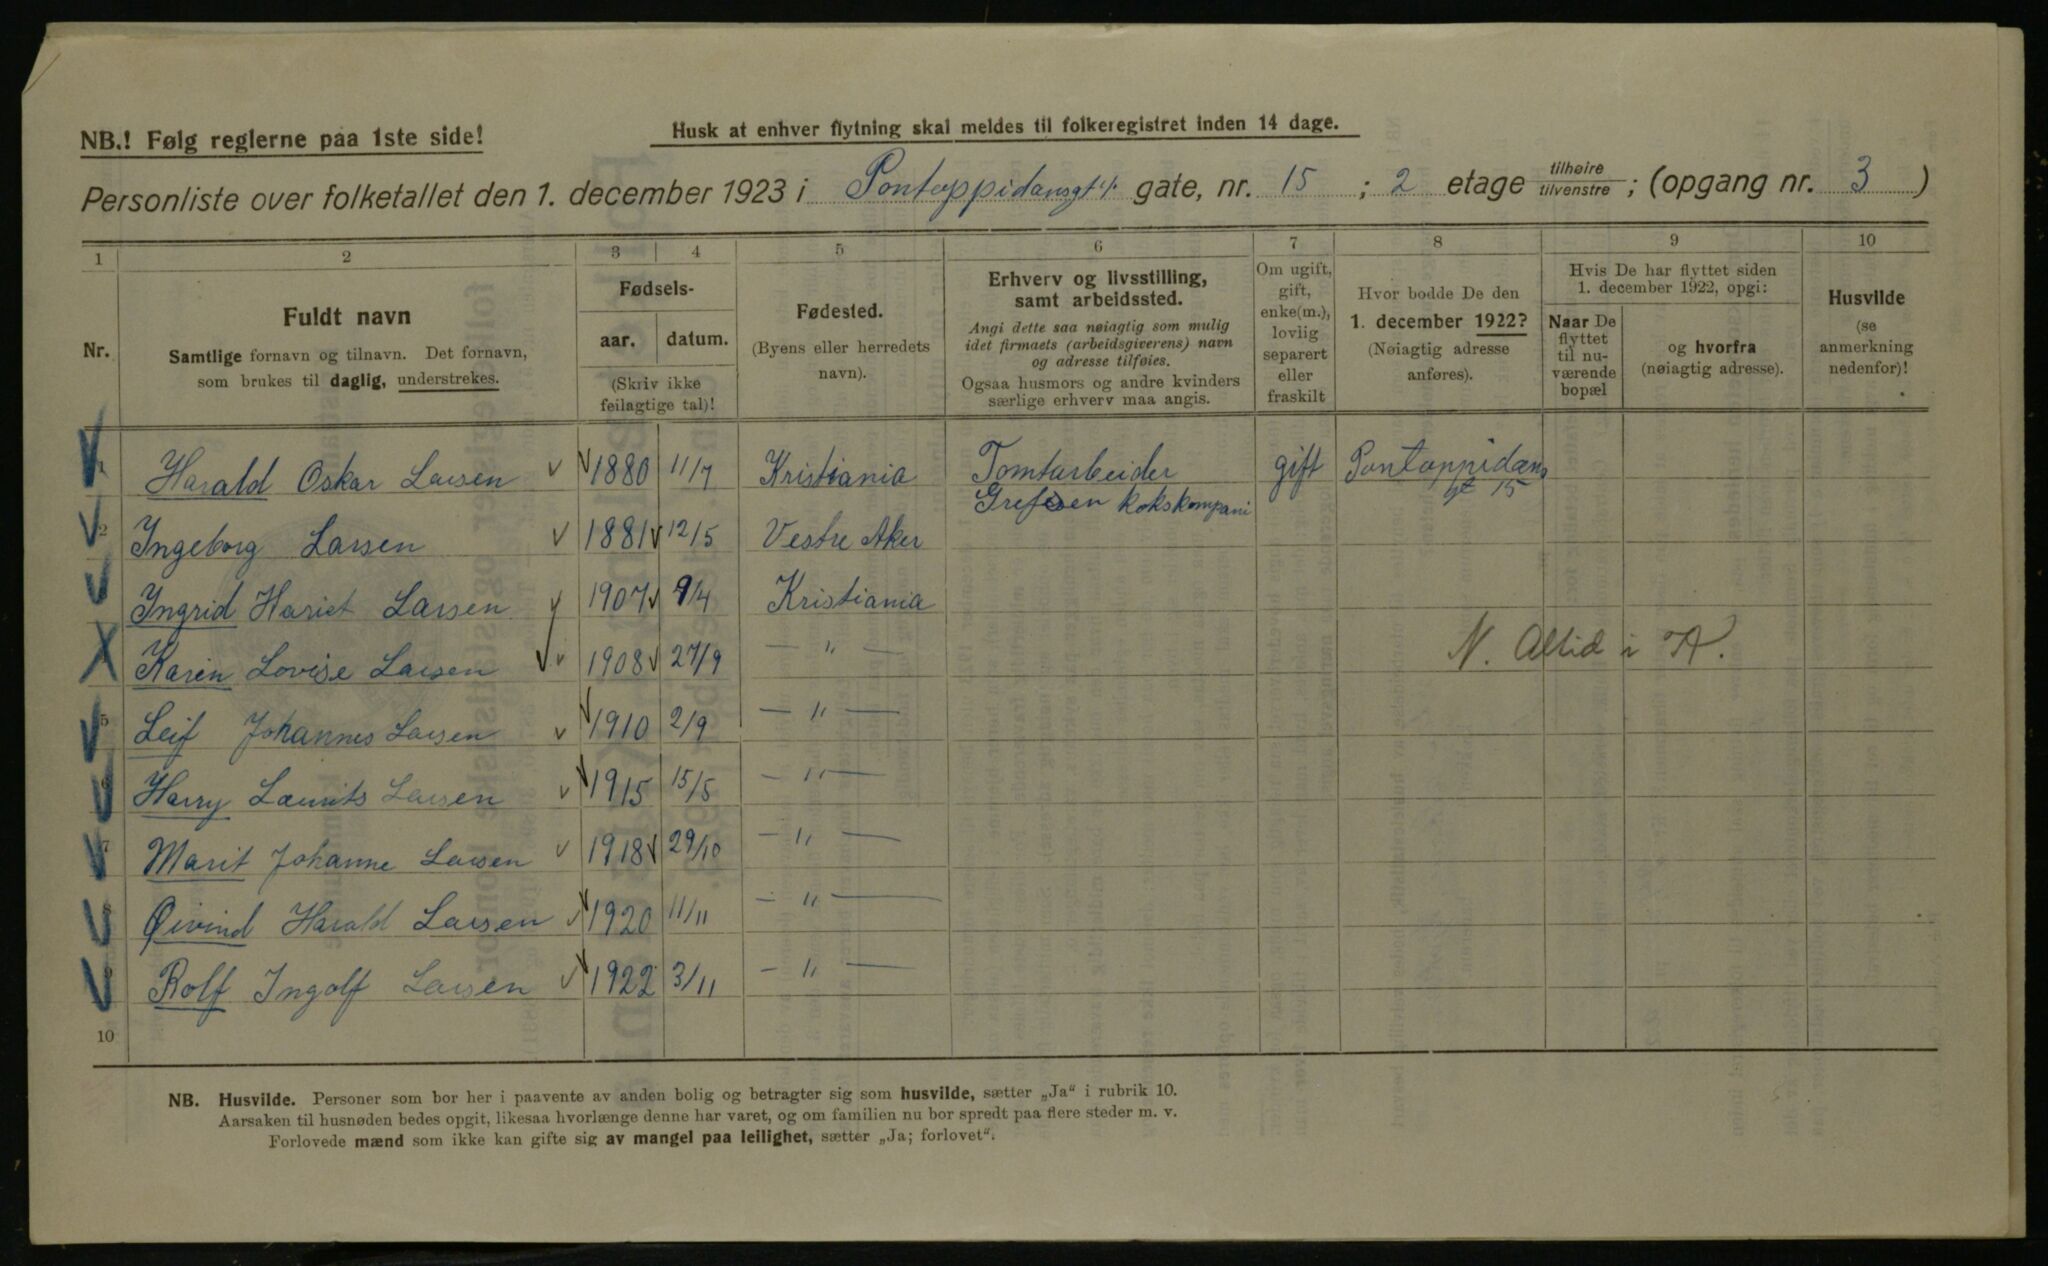 NB.! Følg reglerne paa 1ste side!
Husk at enhver flytning skal meldes til folkeregistret inden 14 dage.
Personliste over folketallet den 1. december 1923 i Pontoppidansgt. gate, nr. 15 ; 2 etage tilhøire tilvenstre ; (opgang nr. 3 )
1 2 3 4 5 6 7 8 9 10
Nr.
Fuldt navn
Samtlige fornavn og tilnavn. Det fornavn,
som brukes til daglig, understrekes.
Fødsels-
aar. datum.
(Skriv ikke
feilagtige tal)!
Fødested.
(Byens eller herredets
navn).
Erhverv og livsstilling,
samt arbeidssted.
Angi dette saa nøiagtig som mulig
idet firmaets (arbeidsgiverens) navn
og adresse tilføies.
Ogsaa husmors og andre kvinders
særlige erhverv maa angis.
Om ugift,
gift,
enke(m.),
lovlig
separert
eller
fraskilt
Hvor bodde De den
1. december 1922?
(Nøiagtig adresse
anføres).
Hvis De har flyttet siden
1. december 1922, opgi:
Naar De
flyttet
til nu-
værende
bopæl
og hvorfra
(nøiagtig adresse).
Husvilde
(se
anmerkning
nedenfor)!
1 Harald Oskar Larsen 1880 11/7 Kristiania Tomtarbeider gift Pontoppidans
Grefsen kokskompani gt 15
2 Ingeborg Larsen 1881 12/5 Vestre Aker
Ingrid Hariet Larsen 1907 9/4 Kristiania
Karin Lovise Larsen 1908 27/9 — " — N. Altid i K.
5 Leif Johannes Larsen 1910 2/9 — " —
6 Harry Laurits Larsen 1915 15/5 — " —
7 Marit Johanne Larsen 1918 29/10 — " —
8 Øivind Harald Larsen 1920 11/11 — " —
9 Rolf Ingolf Larsen 1922 3/11 — " —
10
NB. Husvilde. Personer som bor her i paavente av anden bolig og betragter sig som husvilde, sætter „Ja“ i rubrik 10.
Aarsaken til husnøden bedes opgit, likesaa hvorlænge denne har varet, og om familien nu bor spredt paa flere steder m. v.
Forlovede mænd som ikke kan gifte sig av mangel paa leilighet, sætter „Ja; forlovet“.